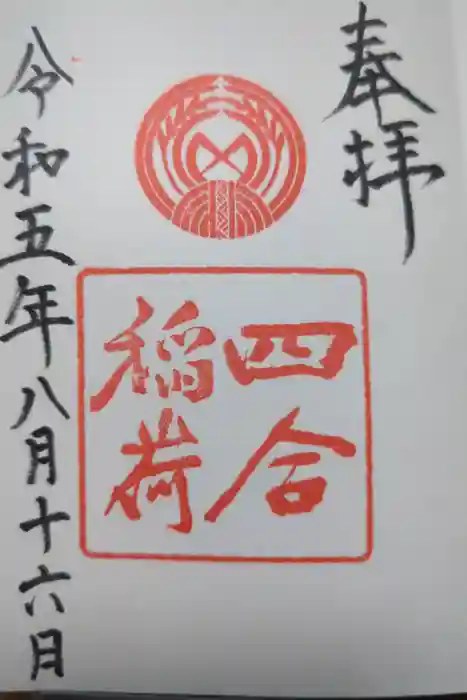 奉拝
四合
稲荷
令和五年八月十六日